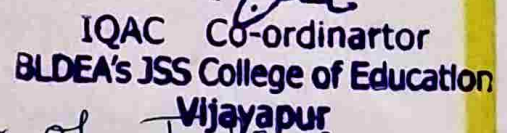 IQAC Co-ordinartor
BLDEA's JSS College of Education
Vijayapur
of